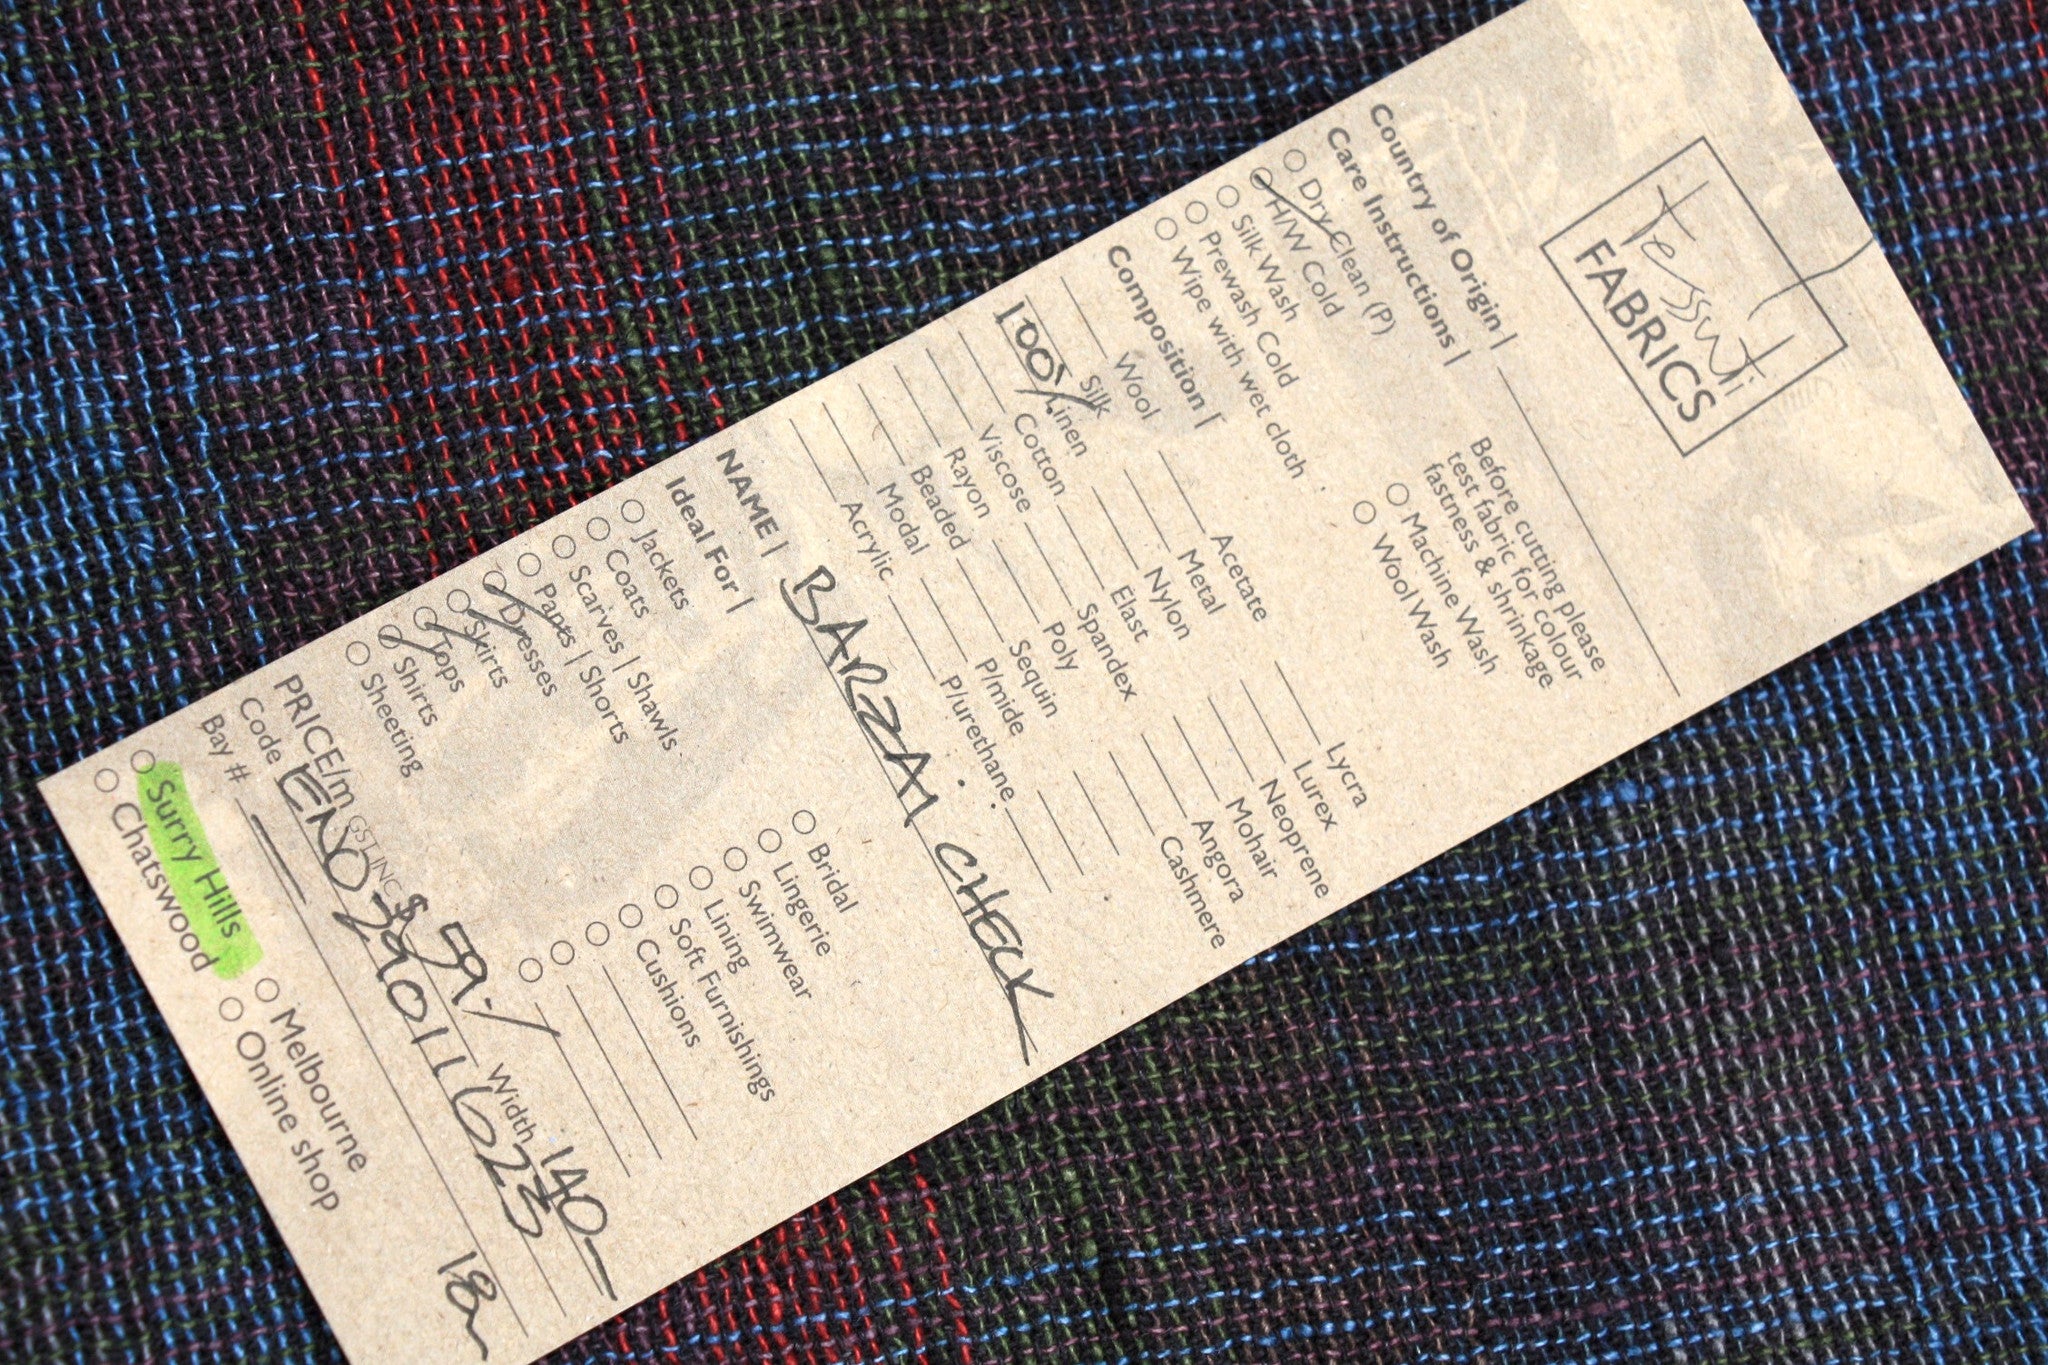 Tessuti
FABRICS
Country of Origin |
Care Instructions |
Before cutting please
test fabric for colour
fastness & shrinkage
Dry Clean (P)
H/W Cold
Silk Wash
Prewash Cold
Wipe with wet cloth
Machine Wash
Wool Wash
Composition |
Wool
Silk
100% Linen
Cotton
Viscose
Rayon
Beaded
Modal
Acrylic
Acetate
Metal
Nylon
Elast
Spandex
Poly
Sequin
P/mide
P/urethane
Lycra
Lurex
Neoprene
Mohair
Angora
Cashmere
NAME | BARZAI CHECK
Ideal For |
Jackets
Coats
Scarves | Shawls
Pants | Shorts
Dresses
Skirts
Tops
Shirts
Sheeting
Bridal
Lingerie
Swimwear
Lining
Soft Furnishings
Cushions
PRICE/m GST INC $59.- Width 140-
Code
Bay # 18m
Surry Hills
Chatswood
Melbourne
Online shop